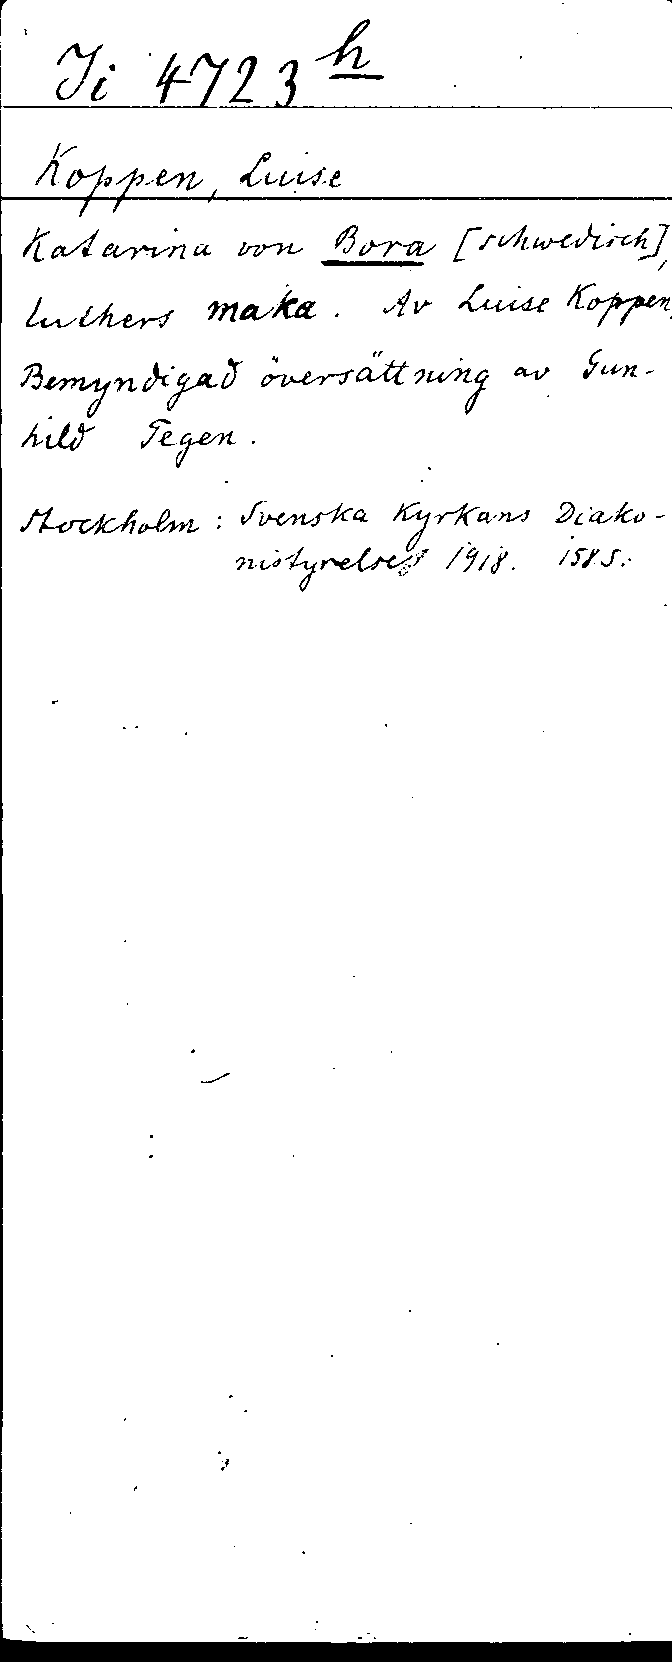 Ji 4723 h
Koppen, Luise
Katarina von Bora [schwedisch],
Luthers maka. Av Luise Koppen
Bemyndigad översättning av Gun-
hild Tegen.
Stockholm: Svenska Kyrkans Diako-
nistyrelse 1918. 158 S.